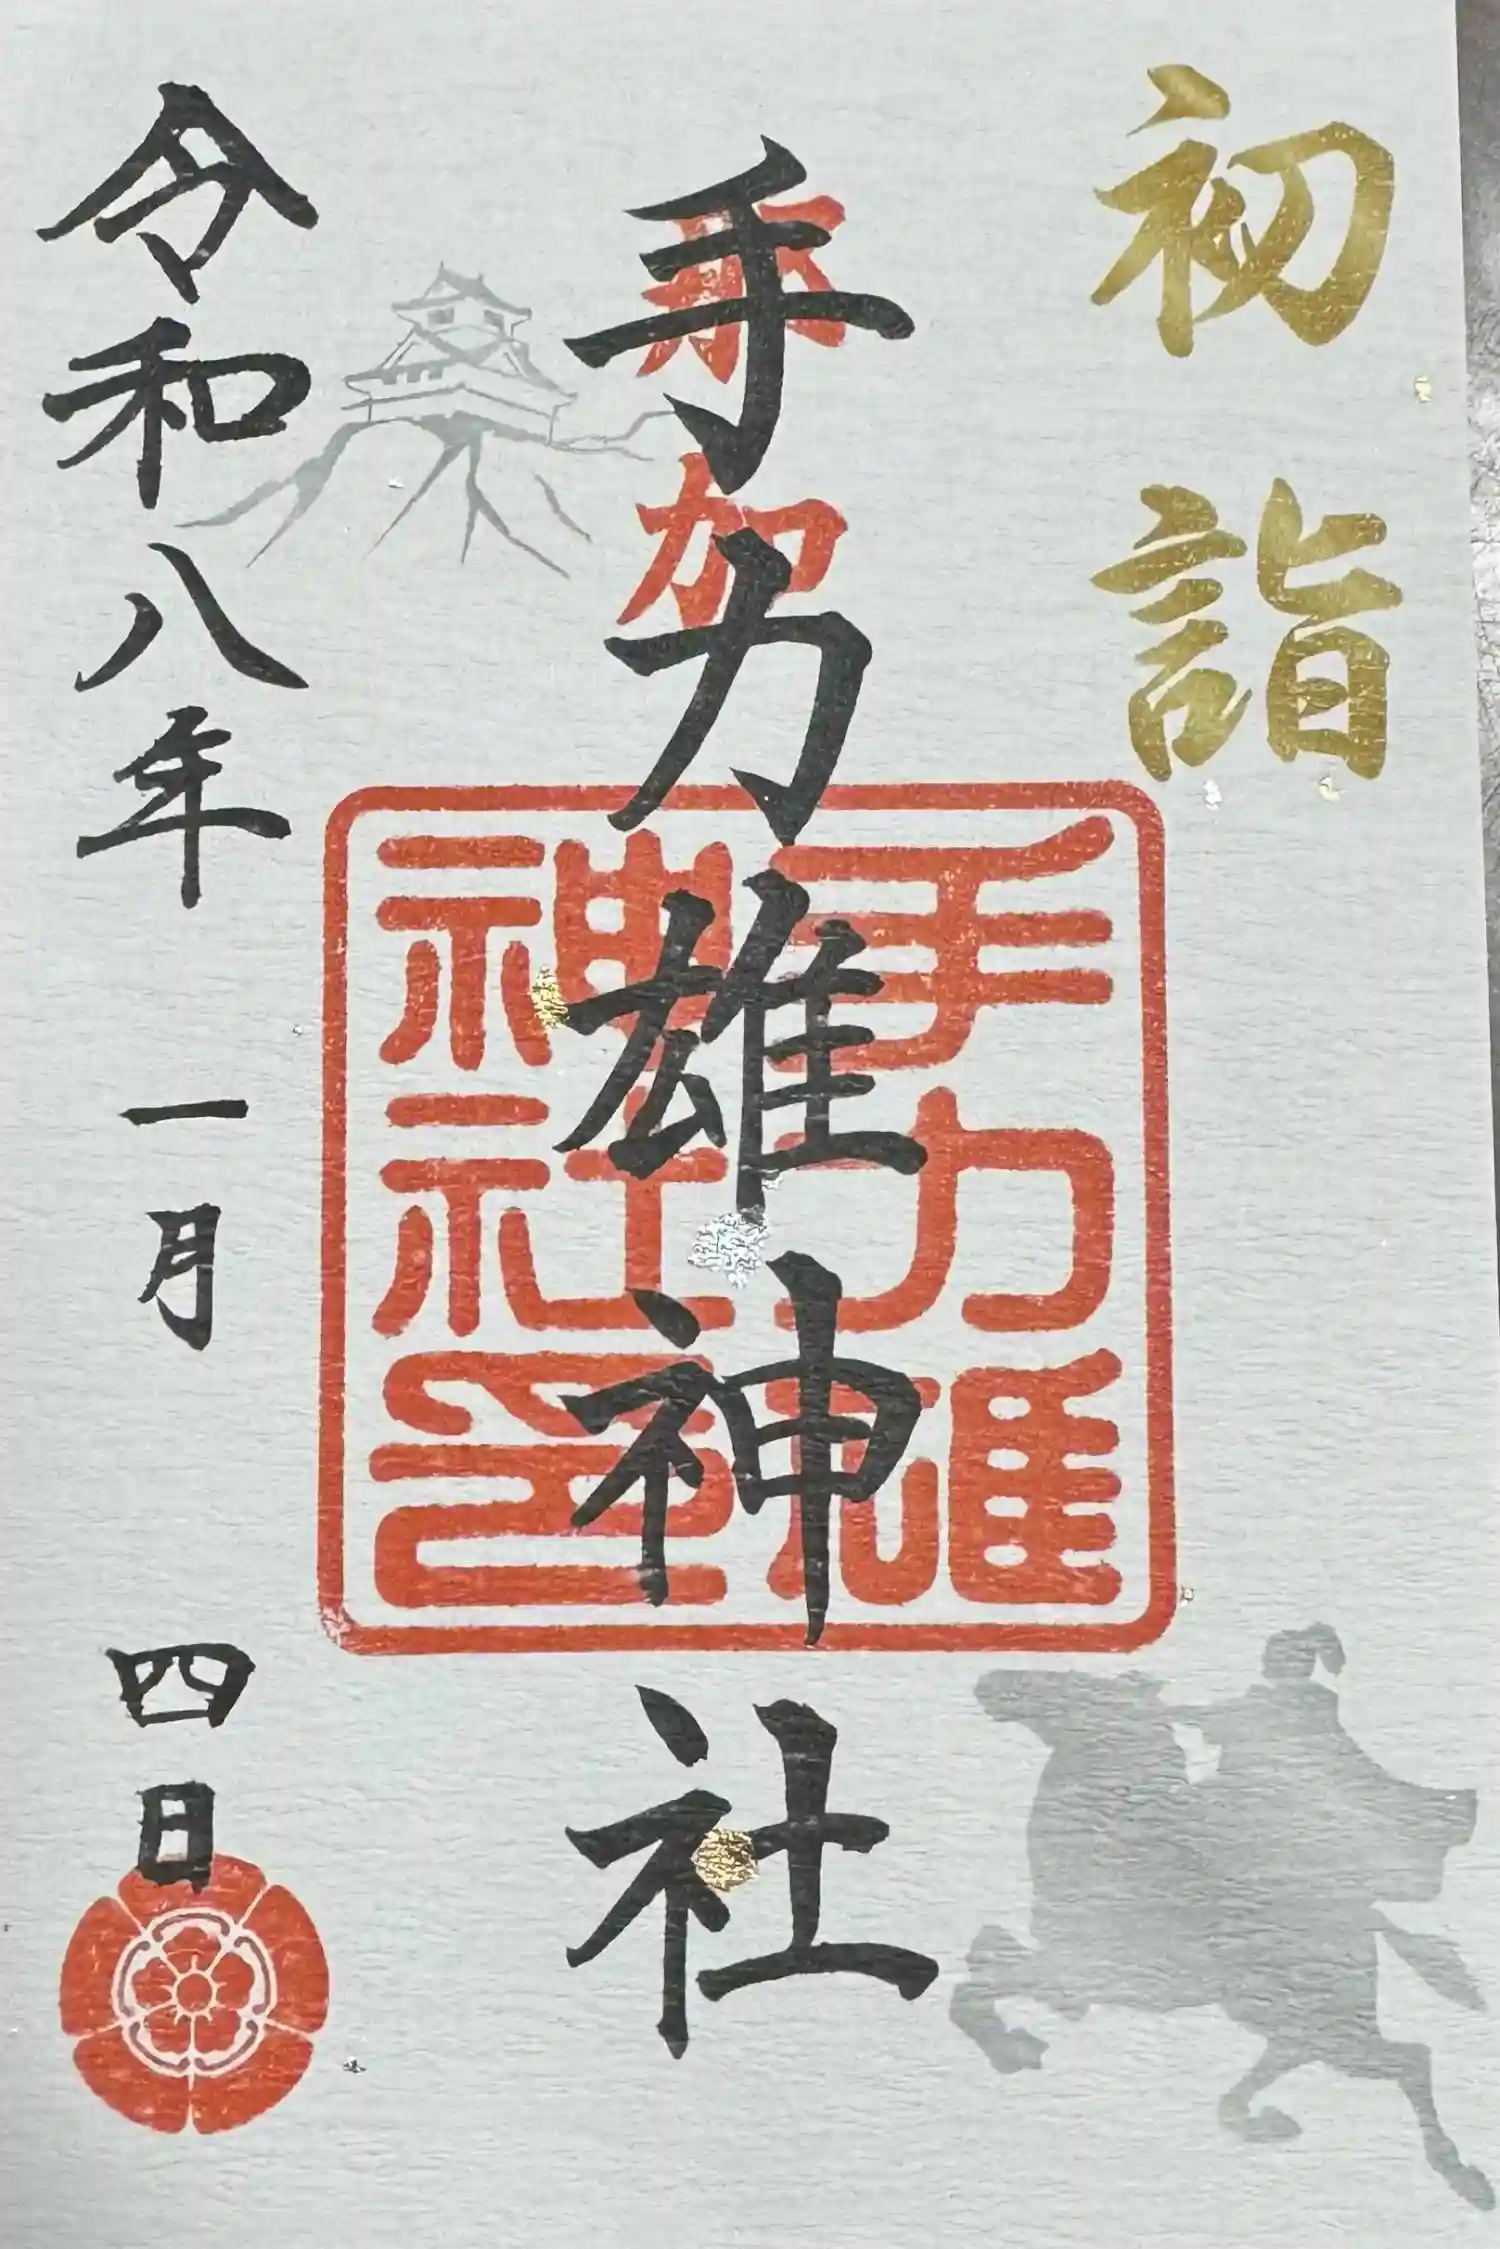 初詣
那加
手力雄神社
手力雄
神社印
令和八年一月四日